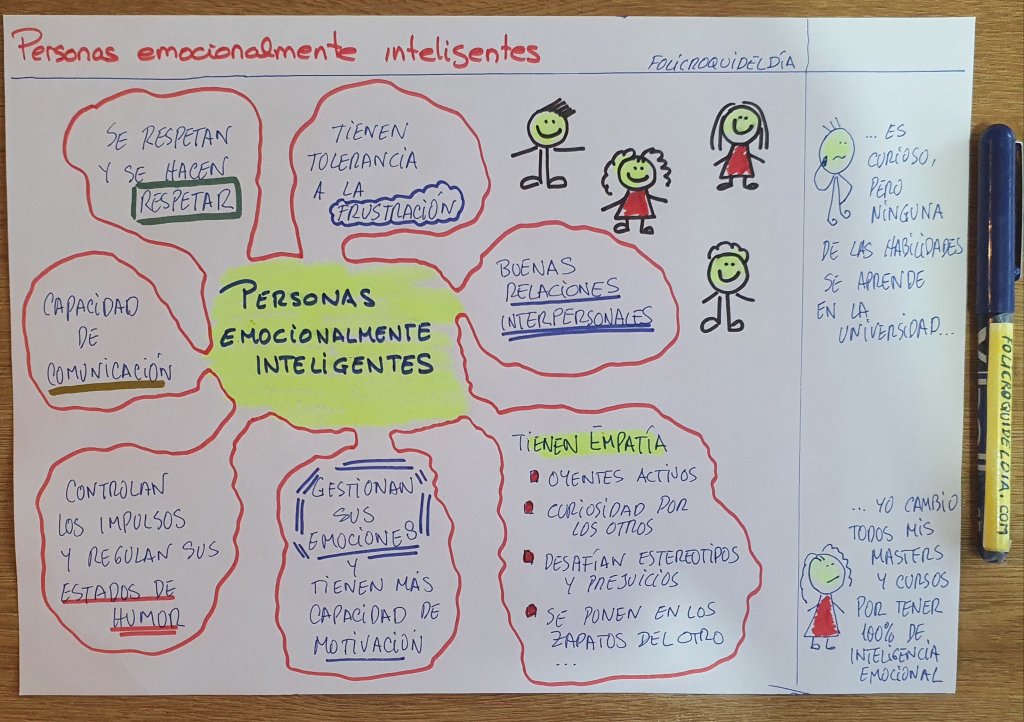 Personas emocionalmente inteligentes
FOLICROQUIDELDÍA
SE RESPETAN
Y SE HACEN
RESPETAR
TIENEN
TOLERANCIA
A LA
FRUSTRACIÓN
BUENAS
RELACIONES
INTERPERSONALES
CAPACIDAD
DE
COMUNICACIÓN
PERSONAS
EMOCIONALMENTE
INTELIGENTES
CONTROLAN
LOS IMPULSOS
Y REGULAN SUS
ESTADOS DE
HUMOR
GESTIONAN
SUS
EMOCIONES
Y
TIENEN MÁS
CAPACIDAD DE
MOTIVACIÓN
TIENEN EMPATÍA
OYENTES ACTIVOS
CURIOSIDAD POR
LOS OTROS
DESAFÍAN ESTEREOTIPOS
Y PREJUICIOS
SE PONEN EN LOS
ZAPATOS DEL OTRO
...
... ES
CURIOSO,
PERO
NINGUNA
DE LAS HABILIDADES
SE APRENDE
EN LA
UNIVERSIDAD...
... YO CAMBIO
TODOS MIS
MASTERS
Y CURSOS
POR TENER
100% DE
INTELIGENCIA
EMOCIONAL
FOLICROQUIDELDIA.COM